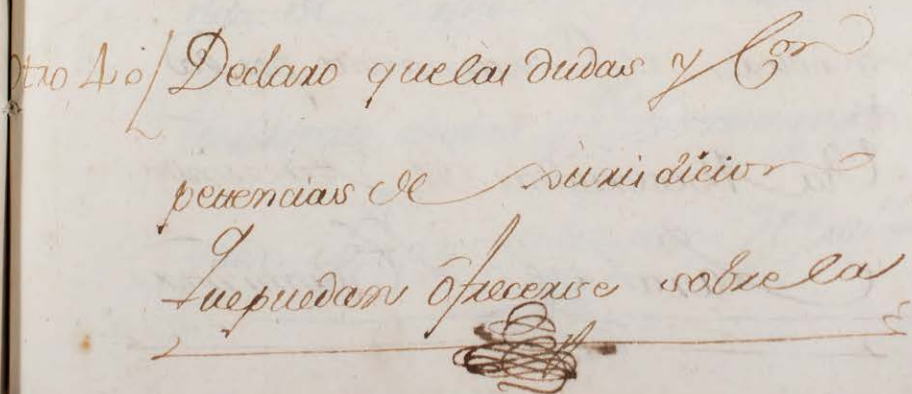 otro 4o/ Declaro quelas dudas y Con
petencias de Jurisdicion
quepuedan ôfrecerse sobre la